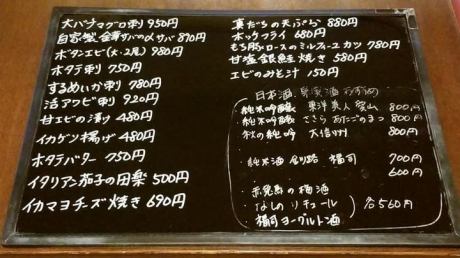 大バチマグロ刺 950円
自家製 金華サバの〆サバ 870円
ボタンエビ(大・2尾) 980円
ホタテ刺 750円
するめいか刺 780円
活アワビ刺 920円
甘エビの漬け 480円
イカゲソ揚げ 480円
ホタテバター 750円
イタリアン茄子の田楽 500円
イカマヨチーズ焼き 690円
真だちの天ぷら 880円
ホッケフライ 680円
もち豚ロースのミルフィーユカツ 780円
甘塩銀鮭焼き 580円
エビのみそ汁 150円
日本酒 果実酒 おすすめ
・純米吟醸 東洋美人 800円
・純米吟醸 800円
・秋の純吟 大信州 800円
・純米酒 釧路 福司 700円
600円
・赤兎馬の梅酒
・なしのリキュール 各560円
・福司ヨーグルト酒